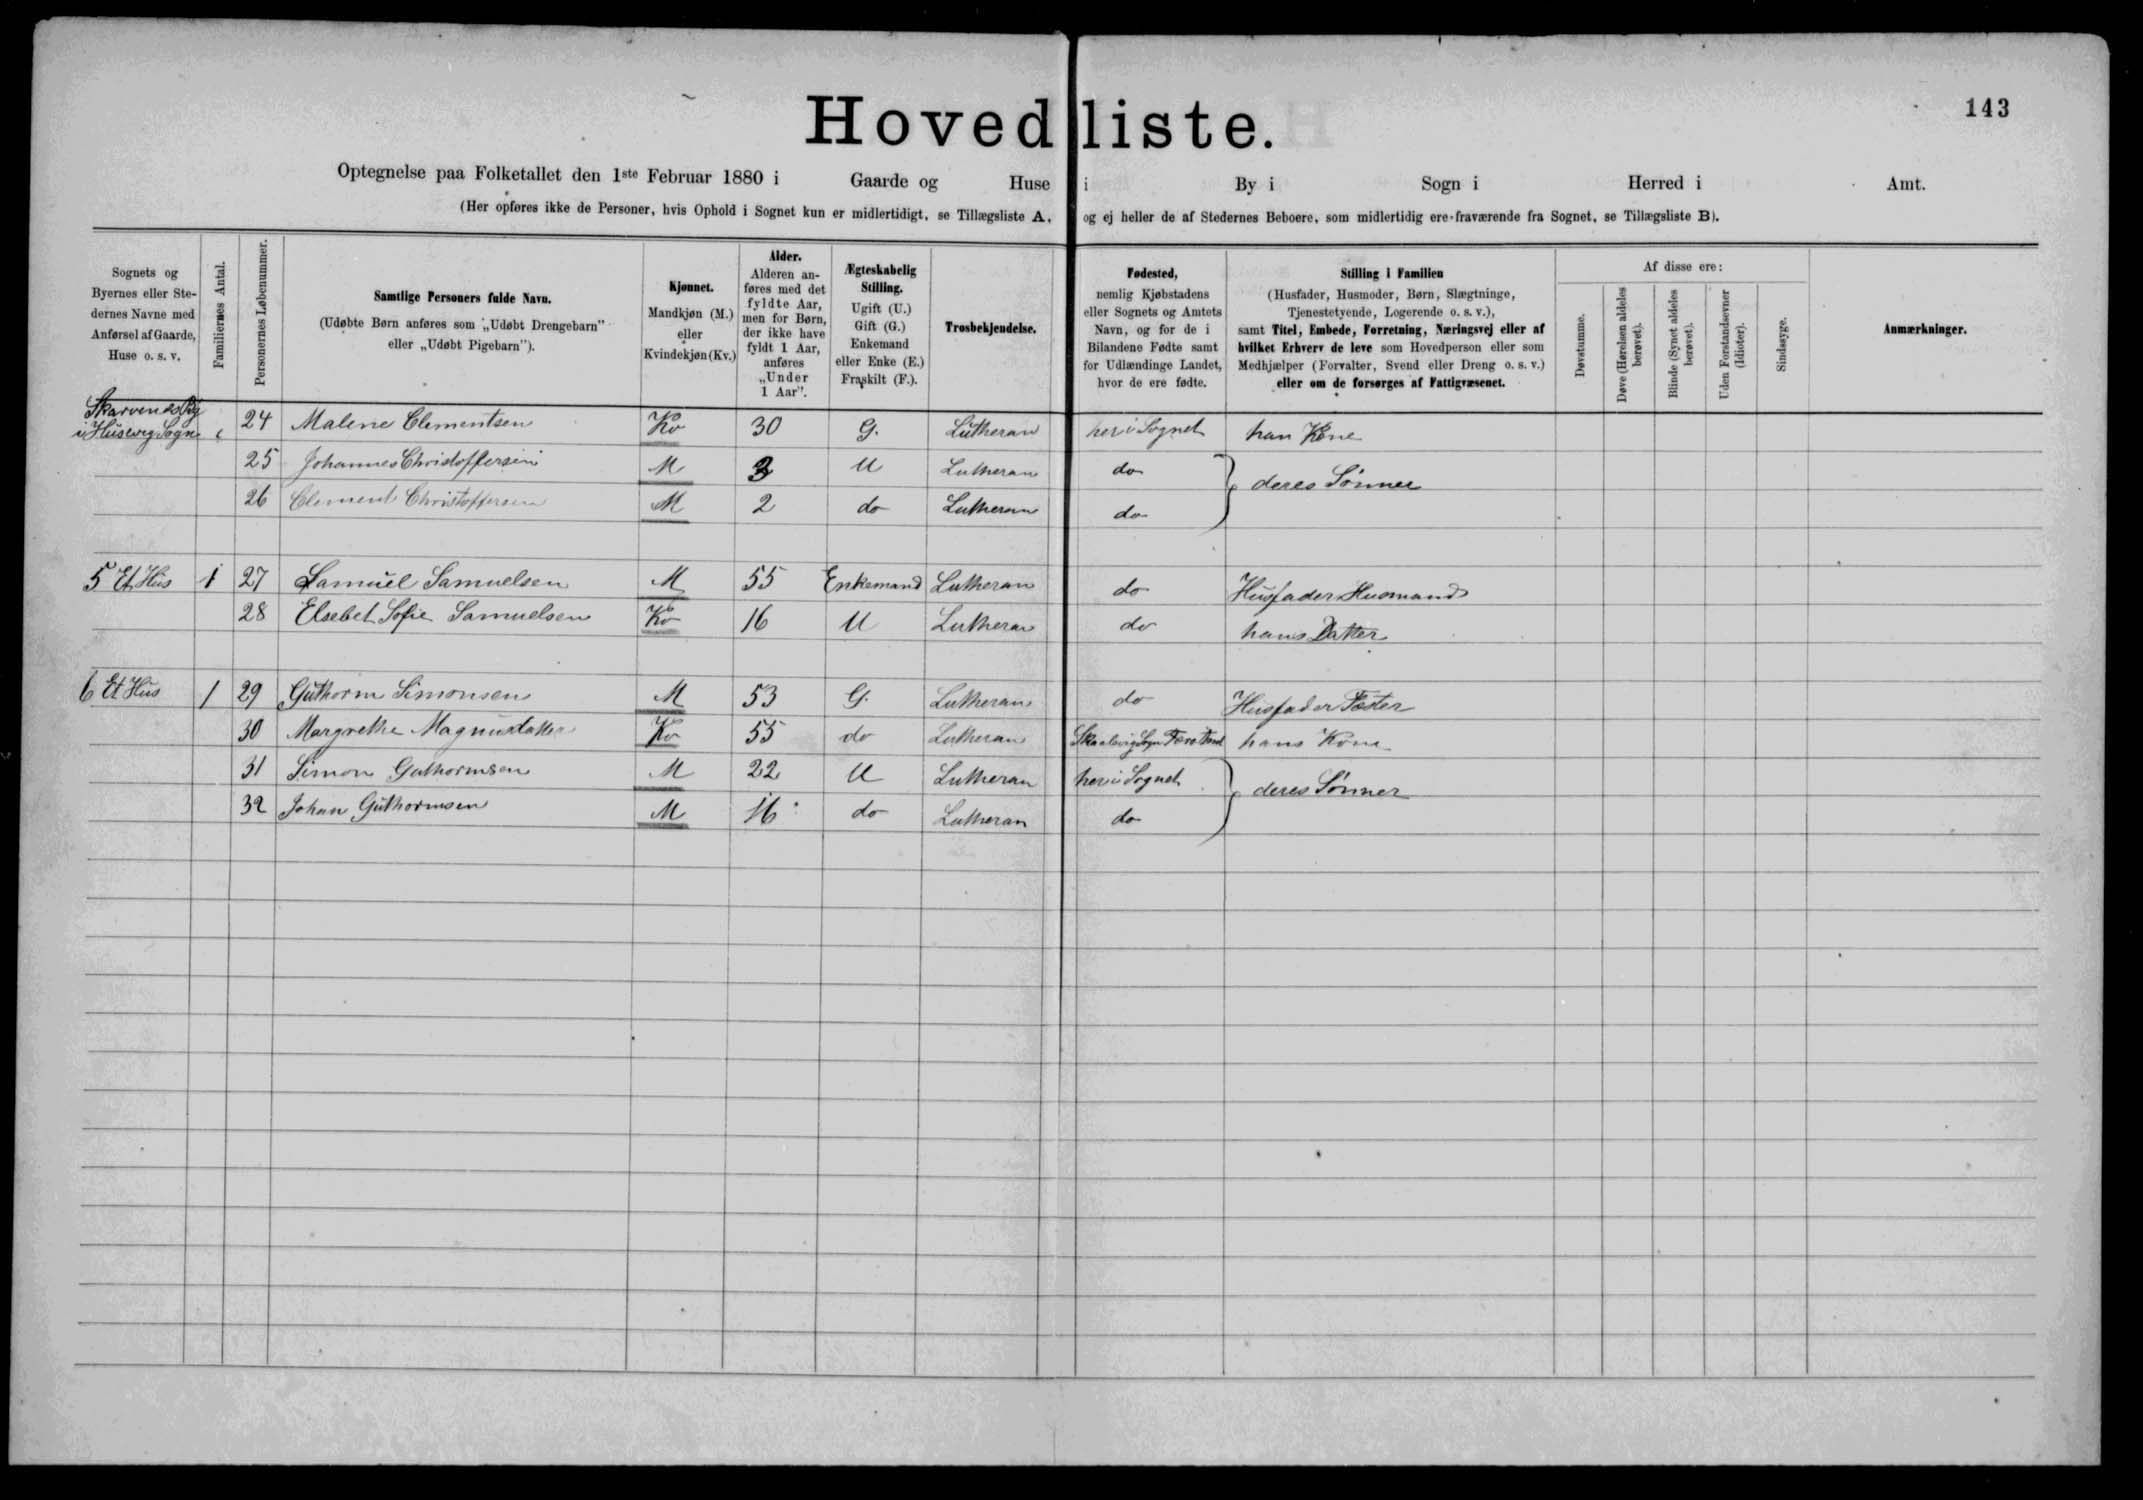 143
Hovedliste.
Optegnelse paa Folketallet den 1ste Februar 1880 i Gaarde og Huse i By i Sogn i Herred i Amt.
(Her opføres ikke de Personer, hvis Ophold i Sognet kun er midlertidigt, se Tillægsliste A, og ej heller de af Stedernes Beboere, som midlertidig ere fraværende fra Sognet, se Tillægsliste B).
Sognets og
Byernes eller Ste-
dernes Navne med
Anførsel af Gaarde,
Huse o. s. v.
Familiernes Antal.
Personernes Løbenummer.
Samtlige Personers fulde Navn.
(Udøbte Børn anføres som „Udøbt Drengebarn"
eller „Udøbt Pigebarn").
Kjønnet.
Mandkjøn (M.)
eller
Kvindekjøn (Kv.)
Alder.
Alderen an-
føres med det
fyldte Aar,
men for Børn,
der ikke have
fyldt 1 Aar,
anføres
„Under
1 Aar".
Ægteskabelig
Stilling.
Ugift (U.)
Gift (G.)
Enkemand
eller Enke (E.)
Fraskilt (F.).
Trosbekjendelse.
Fødested,
nemlig Kjøbstadens
eller Sognets og Amtets
Navn, og for de i
Bilandene Fødte samt
for Udlændinge Landet,
hvor de ere fødte.
Stilling i Familien
(Husfader, Husmoder, Børn, Slægtninge,
Tjenestetyende, Logerende o. s. v.),
samt Titel, Embede, Forretning, Næringsvej eller af
hvilket Erhverv de leve som Hovedperson eller som
Medhjælper (Forvalter, Svend eller Dreng o. s. v.)
eller om de forsørges af Fattigvæsenet.
Af disse ere:
Døvstumme.
Døve (Hørelsen aldeles
berøvet).
Blinde (Synet aldeles
berøvet).
Uden Forstandsevner
(Idioter).
Sindssyge.
Anmærkninger.
Skarvenes By
i Husevig Sogn
24 Malene Clementsen Kv 30 G. Lutheran her i Sognet han Kone
25 Johannes Christoffersen M 3 U Lutheran do
deres Sønner
26 Clement Christoffersen M 2 do Lutheran do
5 Et Hus 1 27 Samuel Samuelsen M 55 Enkemand Lutheran do Husfader Husmand
28 Elsebet Sofie Samuelsen Kv 16 U Lutheran do hans Datter
6 Et Hus 1 29 Guthorm Simonsen M 53 G. Lutheran do Husfader Fæster
30 Margrethe Magnusdatter Kv 55 do Lutheran Sogn hans Kone
31 Simon Guthormsen M 22 U Lutheran her i Sognet
deres Sønner
32 Johan Guthormsen M 16 do Lutheran do